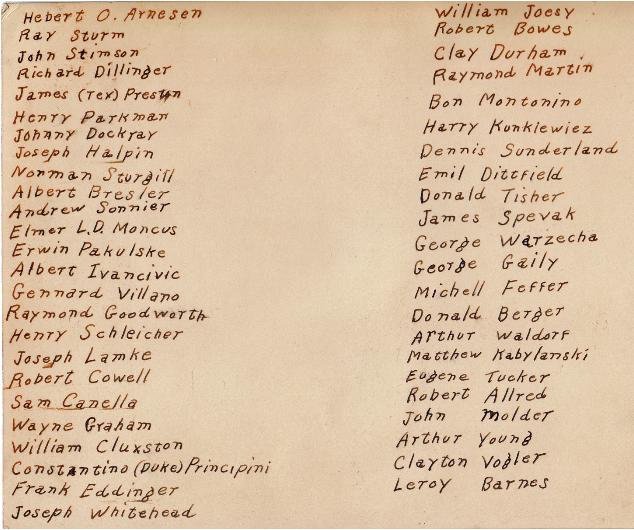 Hebert O. Arnesen
Ray Sturm
John Stimson
Richard Dillinger
James (Tex) Preston
Henry Parkman
Johnny Dockray
Joseph Halpin
Norman Sturgill
Albert Bresler
Andrew Sonnier
Elmer L.D. Moncus
Erwin Pakulske
Albert Ivancivic
Gennard Villano
Raymond Goodworth
Henry Schleicher
Joseph Lamke
Robert Cowell
Sam Canella
Wayne Graham
William Cluxston
Constantino (Duke) Principini
Frank Eddinger
Joseph Whitehead
William Joesy
Robert Bowes
Clay Durham
Raymond Martin
Bon Montonino
Harry Kunkiewiez
Dennis Sunderland
Emil Dittfield
Donald Tisher
James Spevak
George Warzecha
George Gaily
Michell Feffer
Donald Berger
Arthur Waldorf
Matthew Kabylanski
Eugene Tucker
Robert Allred
John Molder
Arthur Young
Clayton Vogler
Leroy Barnes